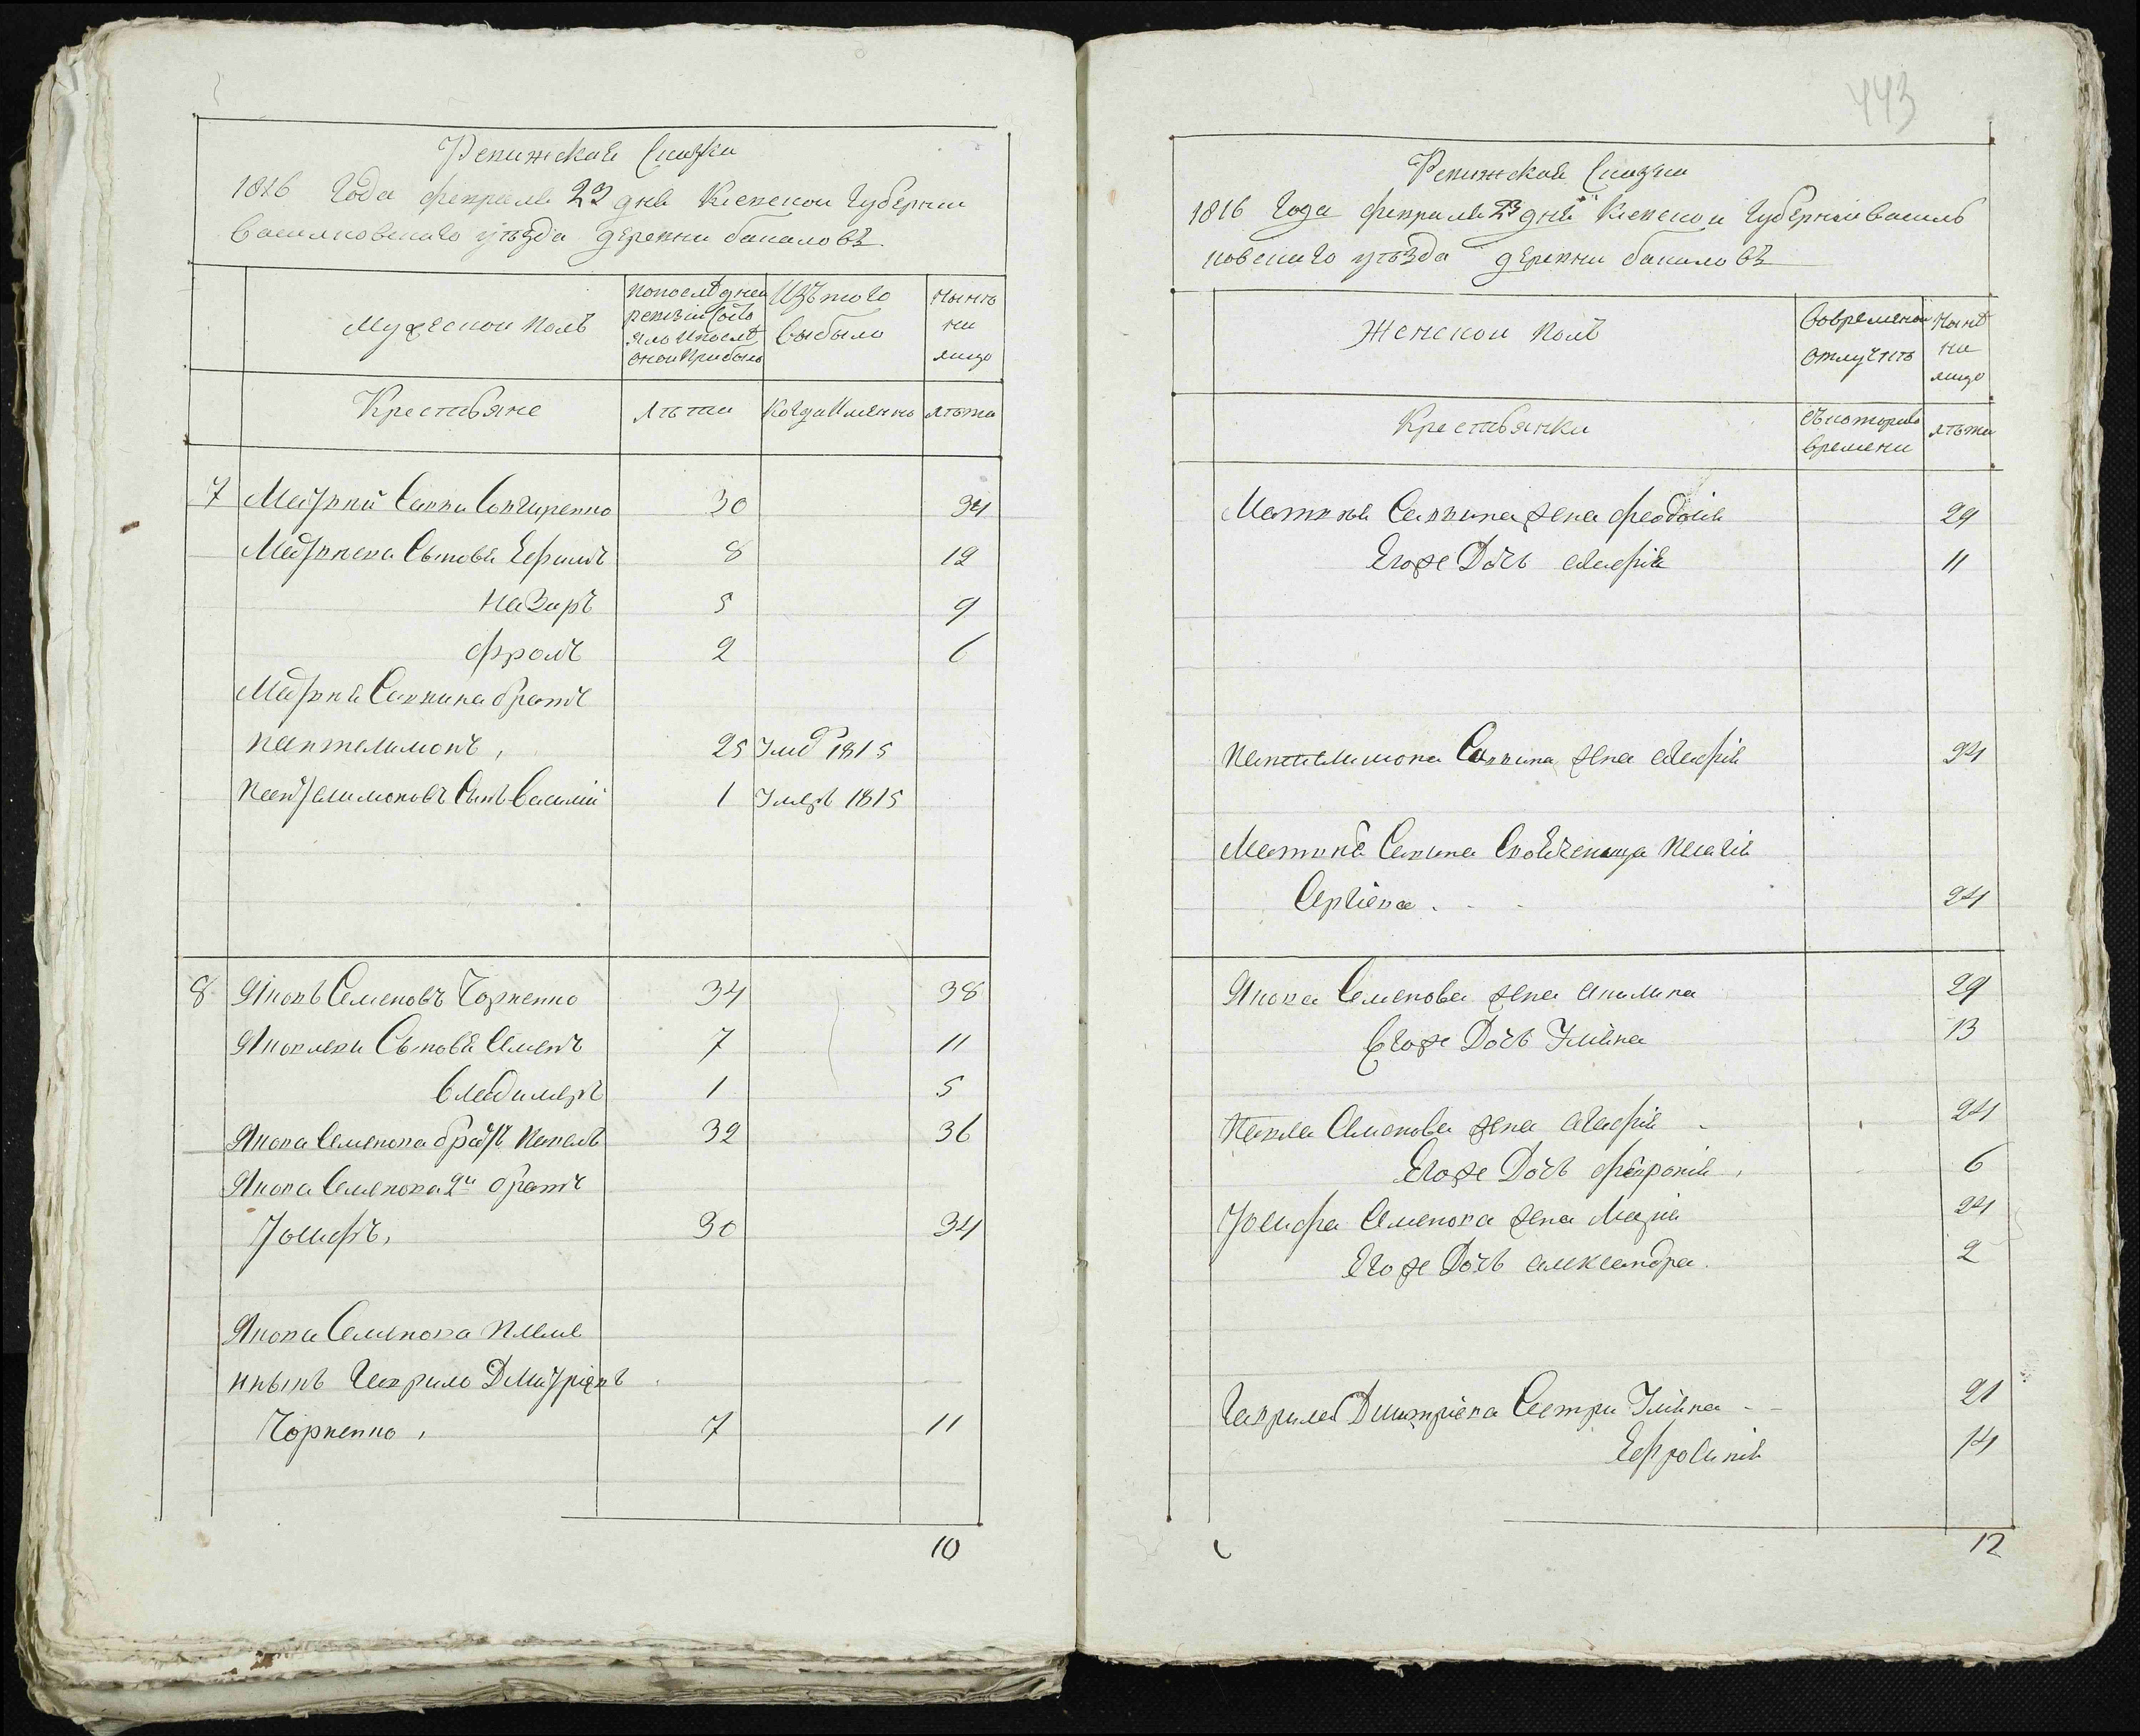 Ревижская Сказка
1816 Года февраля 23 дня Киевскои Губернии
Василковскаго уѣзда деревни бакаловъ
Мужескои полъ
Изъ того
выбыло
Нынѣ
на
лицо
Крестьяне
Лѣта
Когда Имянно
лѣта
7 Матвѣй Савви 30 34
Матвѣева Сыновя Ефимъ 8 12
Назаръ 5 9
Фролъ 2 6
Матвѣя Саввина братъ
пантелимонъ, 25 1815
Пантелимоновъ Сынъ Василій 1 Умеръ 1815
8 Яковъ Семеновъ Чорненко 34 38
Яковлеви Сыновя Семенъ 7 11
владимеръ 1 5
Якова Семенова братъ Павелъ 32 36
Якова Семенова 2й братъ
Іосифъ, 30 34
Якова Семенова племя
нникъ Гаврило Дмитріевъ
Чорненко, 7 11
10
443
Ревижская Сказка
1816 Года февраля 23 дня Киевскои Губерніи Василь
ковскаго уѣзда деревни бакаловъ
Женскои полъ
Вовременной
отлучкѣ
Нынѣ
на
лицо
Крестьянки
съкотораго
времени
лѣта
Матвѣя Саввина жена феодосія 29
Егоже Дочь Агафія 11
Пантилимона Саввина жена Агафія 24
Матвѣя Савина
Сергіева 24
Якова Семенова жена Акилина 29
Егоже Дочь Уліяна 13
Павла Семенова жена Агафія 24
Егоже Дочь февронія, 6
Іосифа Семенова жена Марія 24
Егоже Дочь александра. 2
Гаврила Дмитріева Сестри Уліяна 21
Ефросинія 14
12